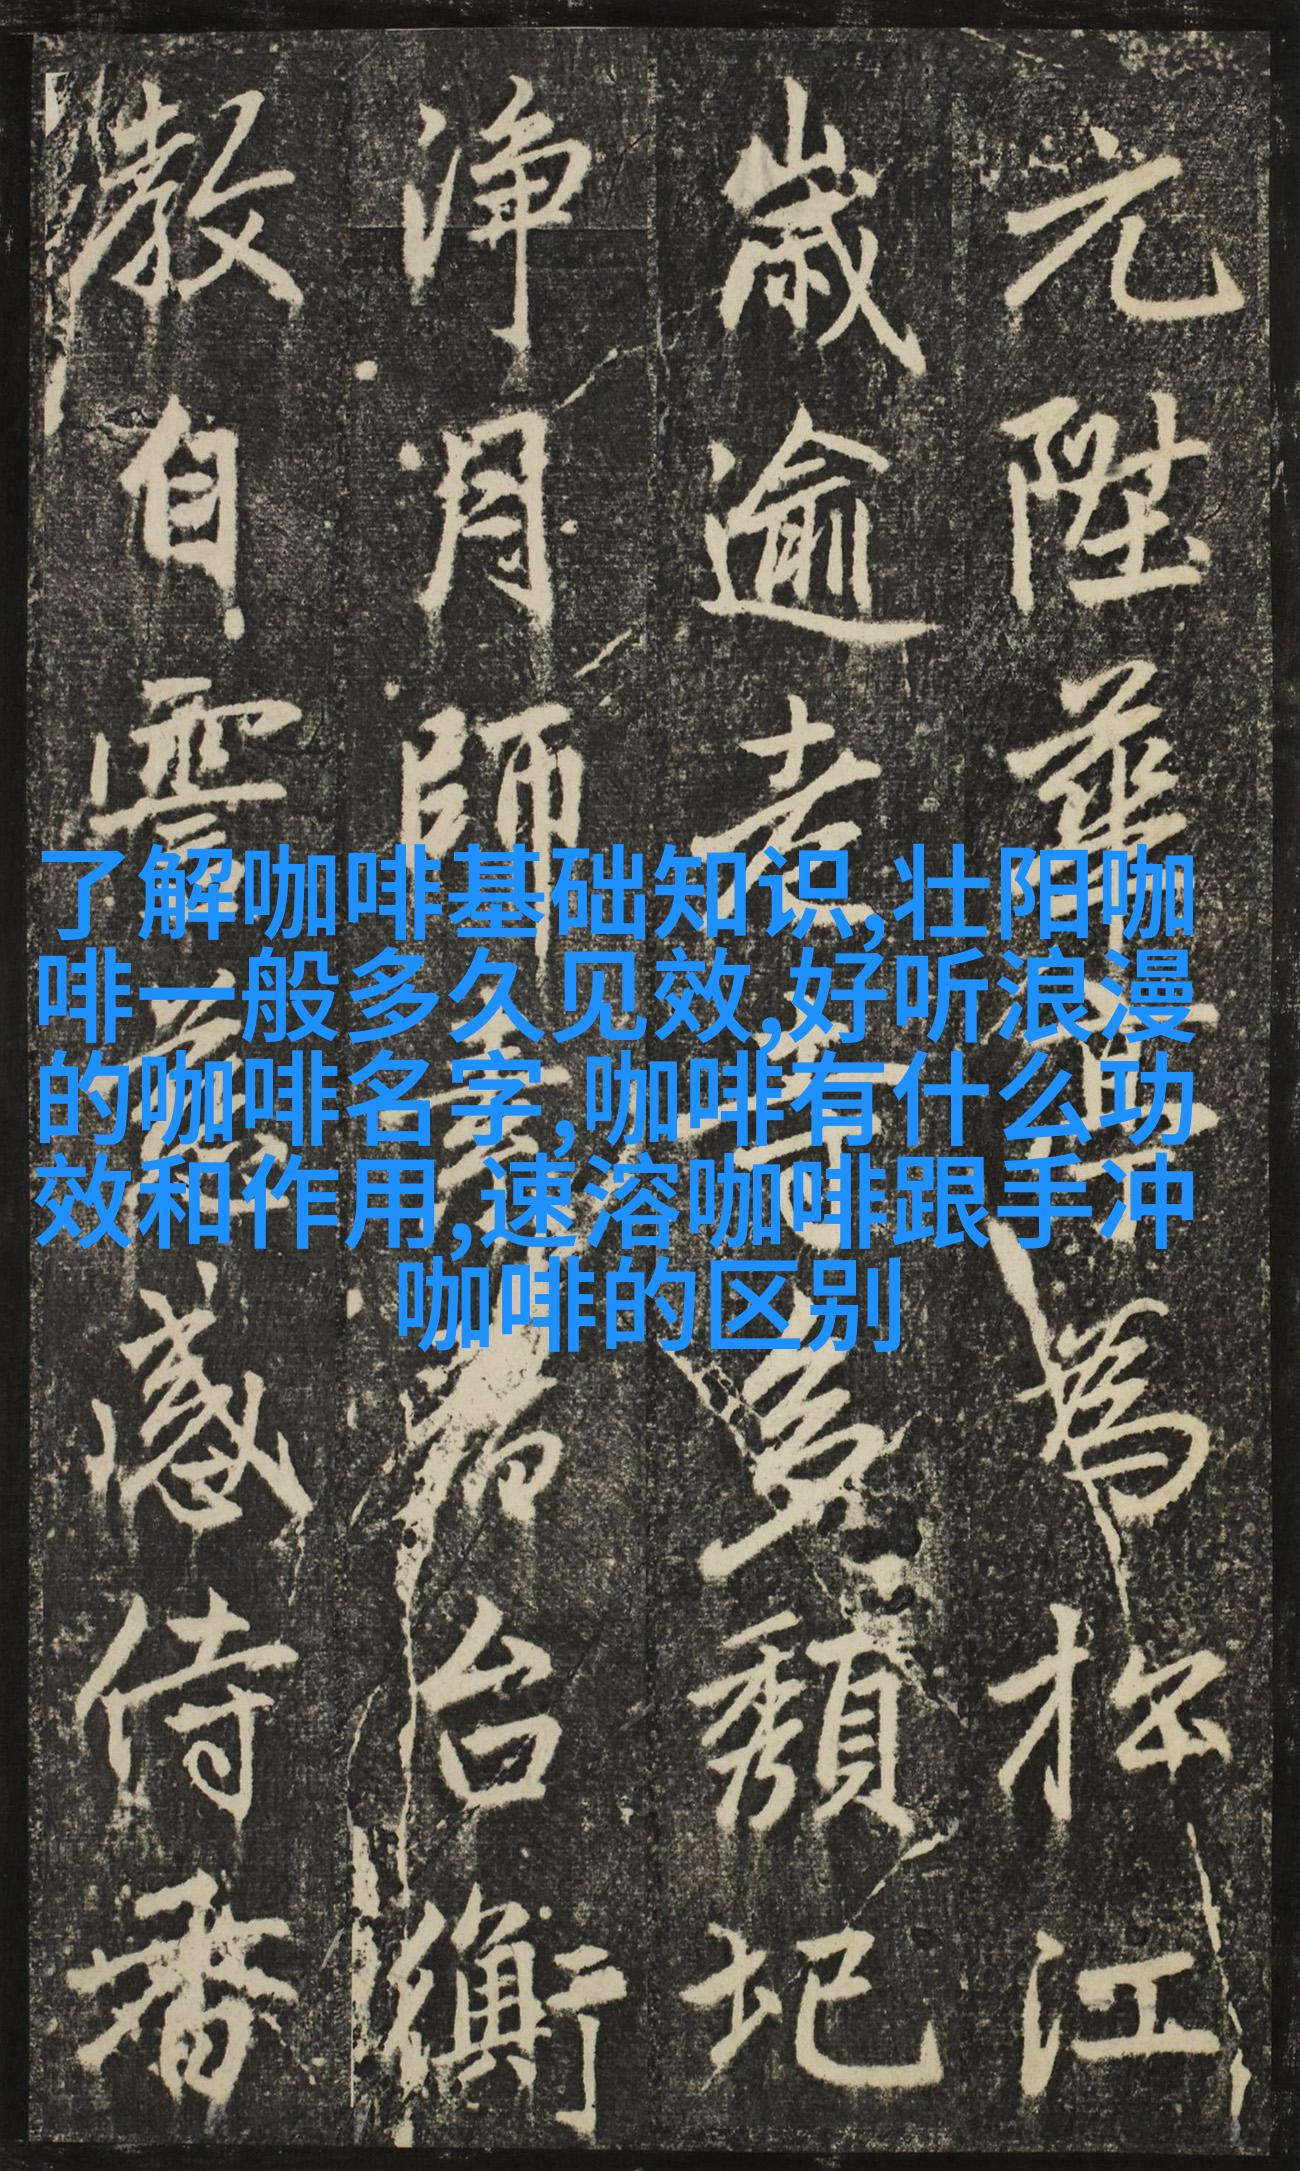 了解咖啡基础知识,壮阳咖
啡一般多久见效,好听浪漫
的咖啡名字,咖啡有什么功
效和作用,速溶咖啡跟手冲
咖啡的区别
元陞華為松江
歲逾老寺多頹圮
浄月師者台衡
教自雲感侍香